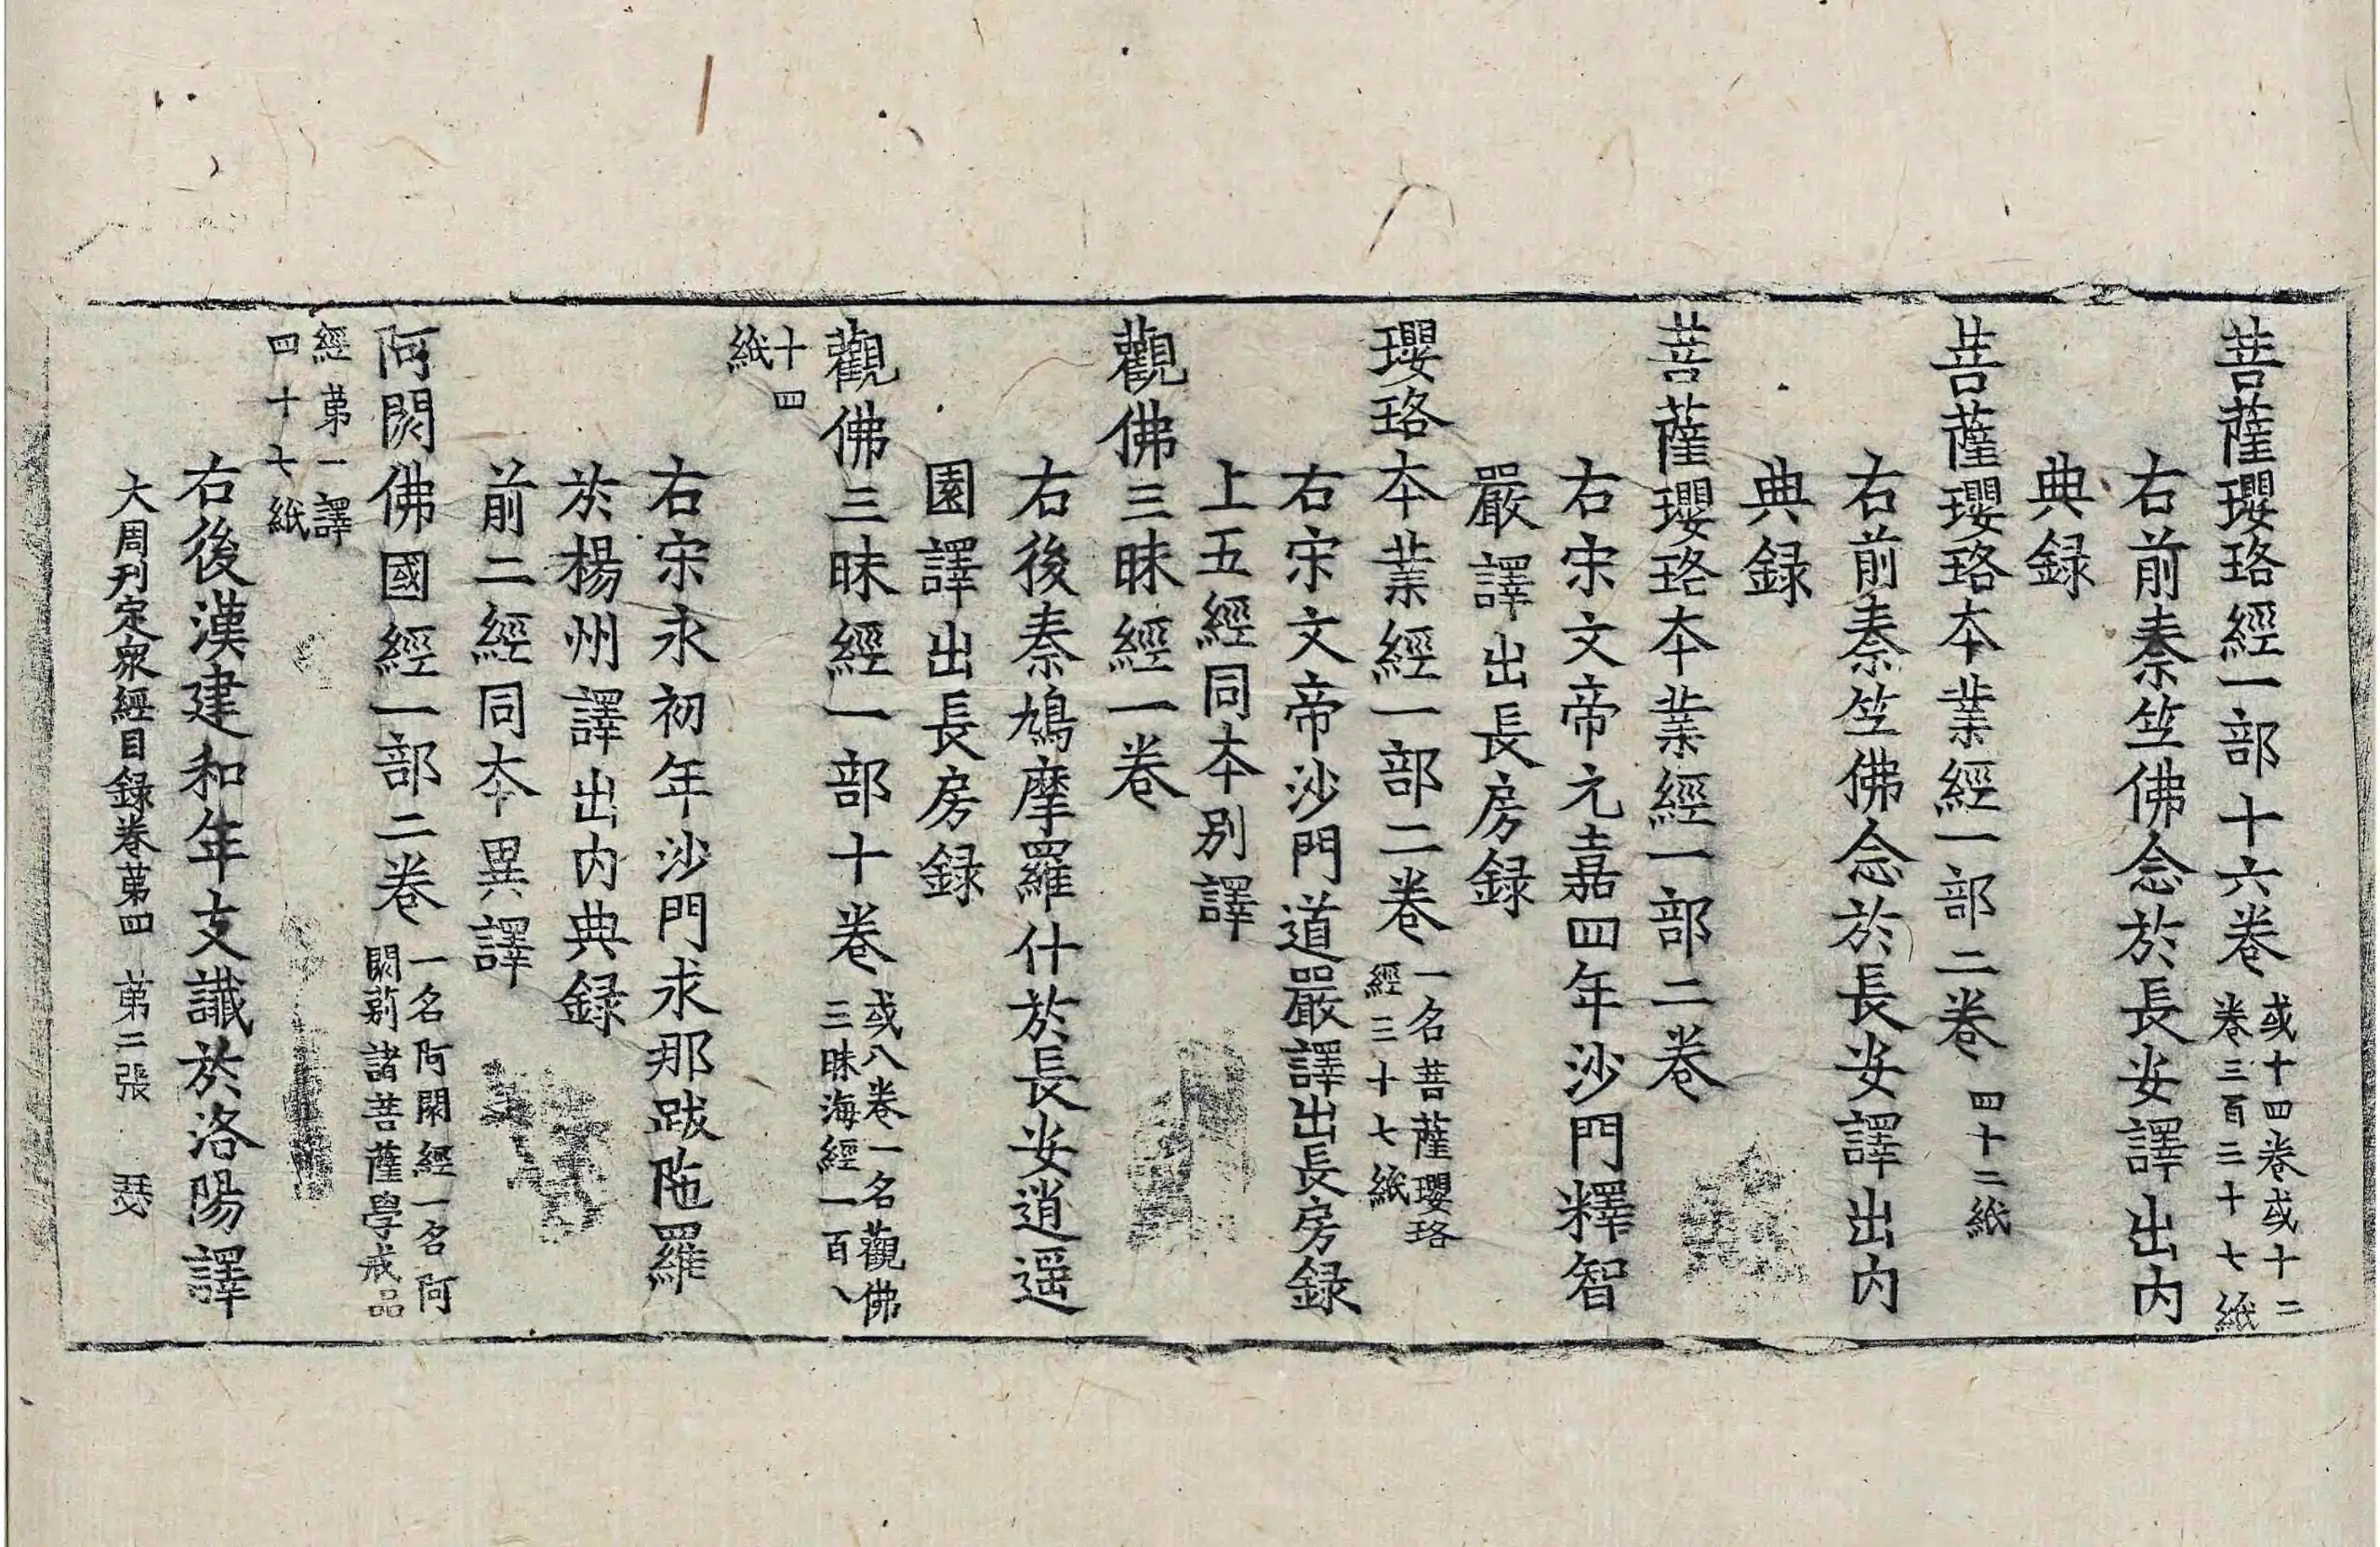 菩薩瓔珞經一部十六卷 或十四卷或十二卷三百三十七紙
右前秦竺佛念於長安譯出內
典録
菩薩瓔珞本業經一部二卷 四十二紙
右前秦竺佛念於長安譯出內
典録
菩薩瓔珞本業經一部二卷
右宋文帝元嘉四年沙門釋智
嚴譯出長房録
瓔珞本業經一部二卷 一名菩薩瓔珞經三十七紙
右宋文帝沙門道嚴譯出長房録
上五經同本別譯
觀佛三昧經一卷
右後秦鳩摩羅什於長安逍遥
園譯出長房録
觀佛三昧經一部十卷 或八卷一名觀佛三昧海經一百八
十四紙
右宋永初年沙門求那跋陁羅
於楊州譯出內典録
前二經同本異譯
阿閦佛國經一部二卷 一名阿閦經一名阿閦剎諸菩薩學戒品
經苐一譯四十七紙
右後漢建和年支讖於洛陽譯
大周刋定衆經目録卷苐四 苐二張 瑟